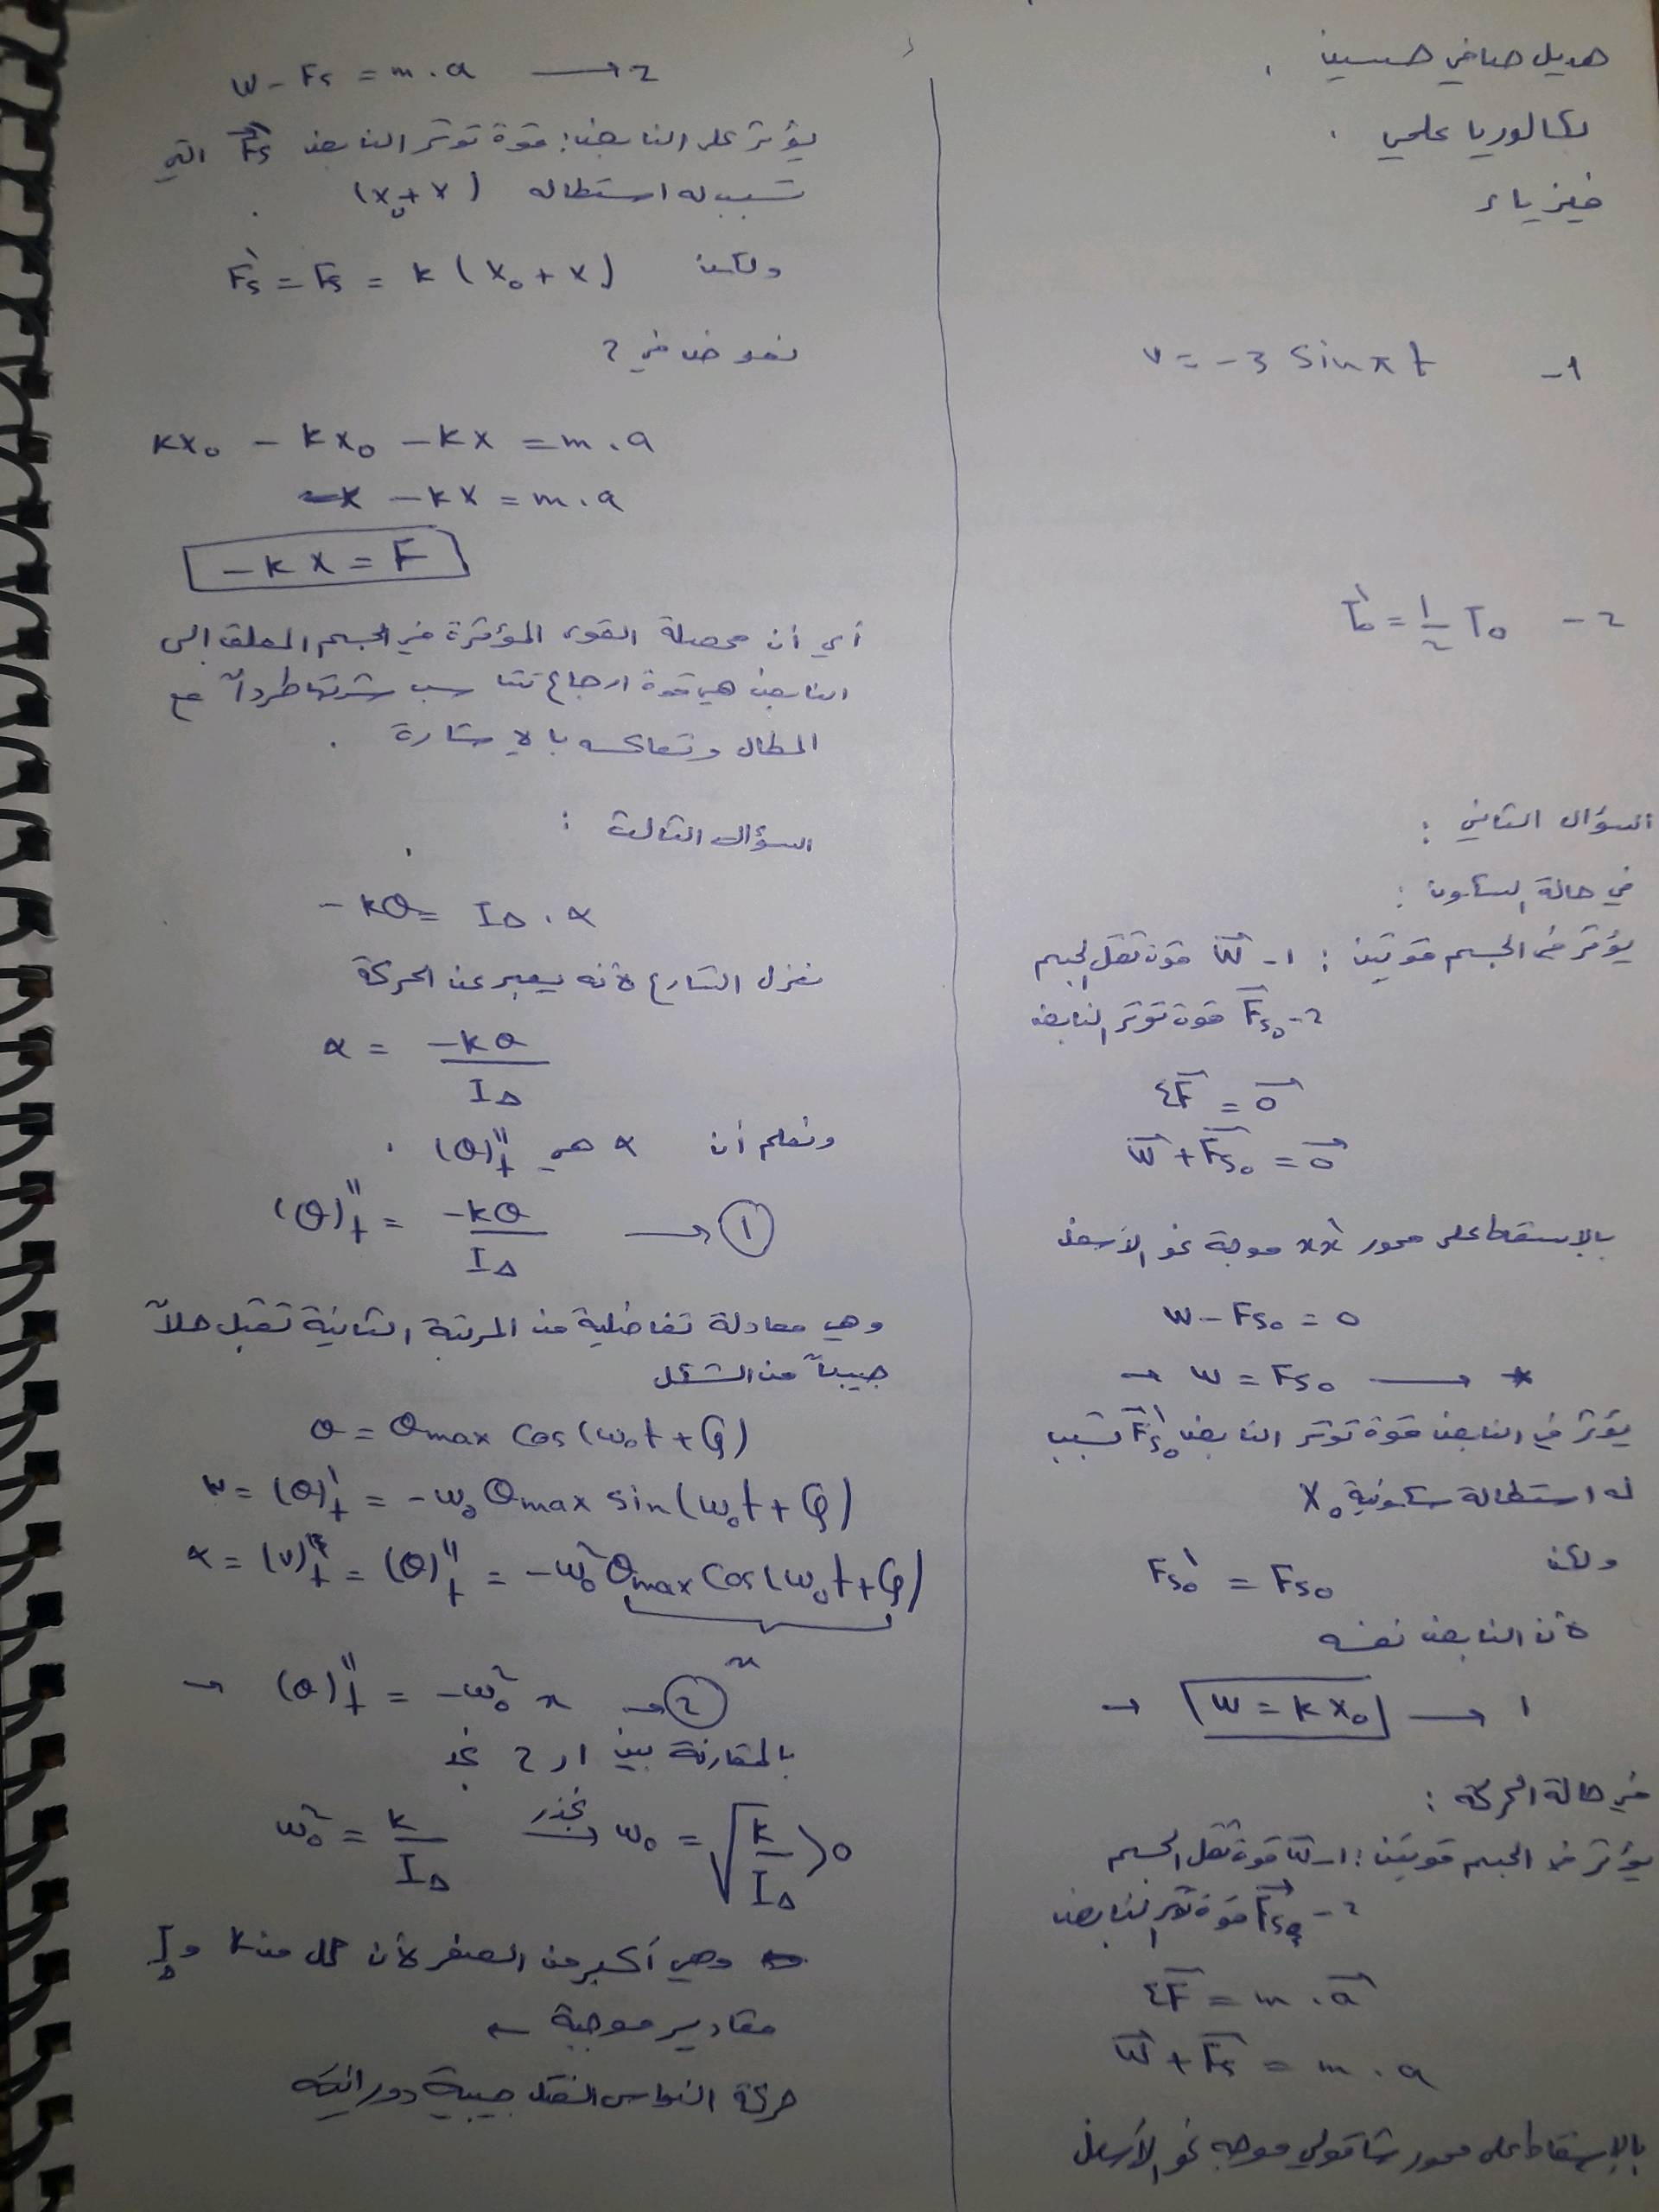 هديل صافي حسين .
بكالوريا علمي .
فيزياء
1- v = -3 sin π t
2- T₀' = 1/2 T₀
السؤال الثاني :
في حالة السكون :
يؤثر في الجسم قوتين : 1- W⃗ قوة ثقل الجسم
2- F⃗s₀ قوة توتر النابض
ΣF⃗ = 0⃗
W⃗ + F⃗s₀ = 0⃗
بالإسقاط على محور xx' موجهة نحو الأسفل
W - Fs₀ = 0
→ W = Fs₀ → *
يؤثر في النابض قوة توتر النابض F⃗s₀' تسبب
له استطالة سكونية x₀
ولكن Fs₀' = Fs₀
لأن النابض نفسه
→ W = k x₀ → 1
في حالة الحركة :
يؤثر في الجسم قوتين : 1- W⃗ قوة ثقل الجسم
2- F⃗s قوة توتر النابض
ΣF⃗ = m . a⃗
W⃗ + F⃗s = m . a
بالإسقاط على محور شاقولي موجه نحو الأسفل
W - Fs = m . a → 2
يؤثر على النابض : قوة توتر النابض F⃗s' التي
تسبب له استطاله (x₀ + x)
ولكن Fs' = Fs = k (x₀ + x)
نعوض في 2
kx₀ - kx₀ - kx = m . a
- kx = m . a
- k x = F
أي أن محصلة القوى المؤثرة في الجسم المعلق إلى
النابض هي قوة ارجاع تتناسب شدتها طرداً مع
المطال وتعاكسه بالإشارة .
السؤال الثالث :
- kθ = I∆ . α
نعزل التسارع لأنه يعبر عن الحركة
α = -kθ / I∆
ونعلم أن α هي (θ)''t .
(θ)''t = -kθ / I∆ → ①
وهي معادلة تفاضلية من المرتبة الثانية تقبل حلاً
جيبياً من الشكل
θ = θmax cos(ω₀t + φ)
w = (θ)'t = -ω₀ θmax sin(ω₀t + φ)
α = (v)'t = (θ)''t = -ω₀² θmax cos(ω₀t + φ)
x
→ (θ)''t = -ω₀² x → ②
بالمقارنة بين 1 و 2 نجد
ω₀² = k / I∆ نجذر → ω₀ = √(k / I∆) > 0
وهي أكبر من الصفر لأن كل من k و I∆
مقادير موجبة ←
حركة النواس الفتل جيبية دورانية